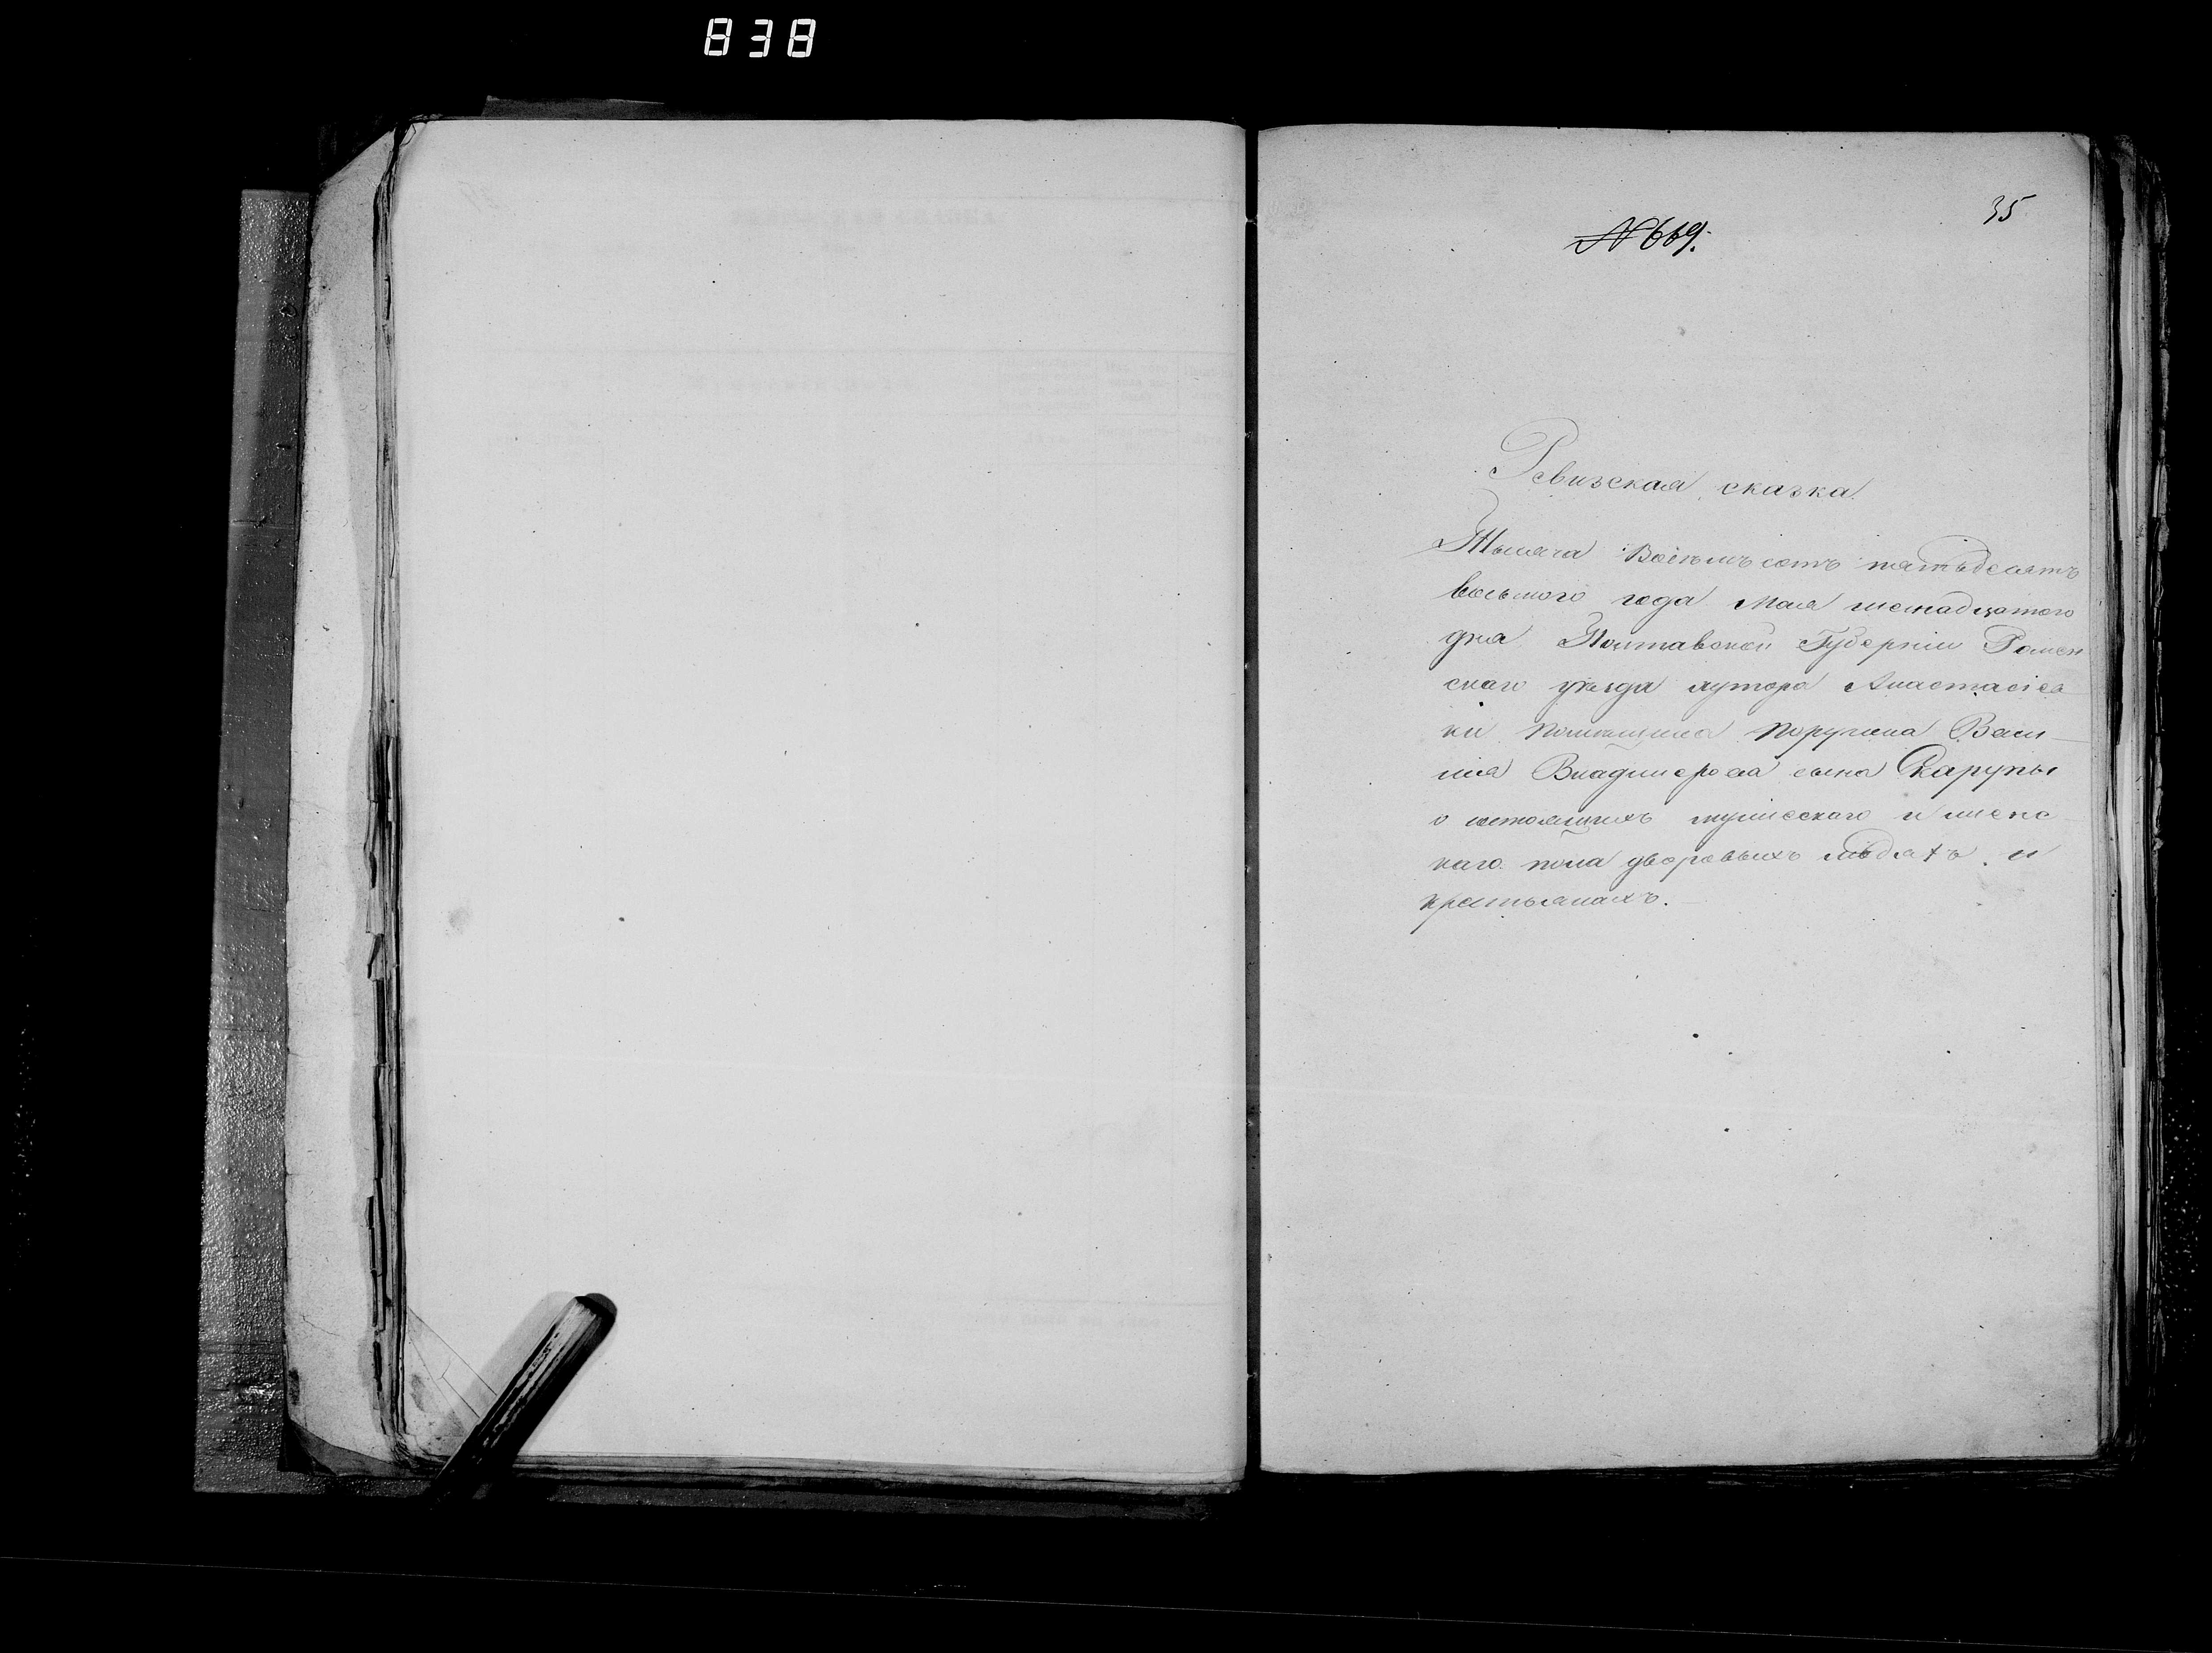 838
35
№ 669.
Ревизская сказка
Тысяча Восемьсотъ пятьдесятъ
восьмого года Мая шеснадцатого
дня Полтавской Губерніи Ромен
скаго уѣзда хутора Анастасіев
ки помѣщика Поручика Васи-
лія Владимерова сына Скарупы
о состоящихъ мужескаго и женс
каго пола дворовыхъ людяхъ и
крестьянахъ.